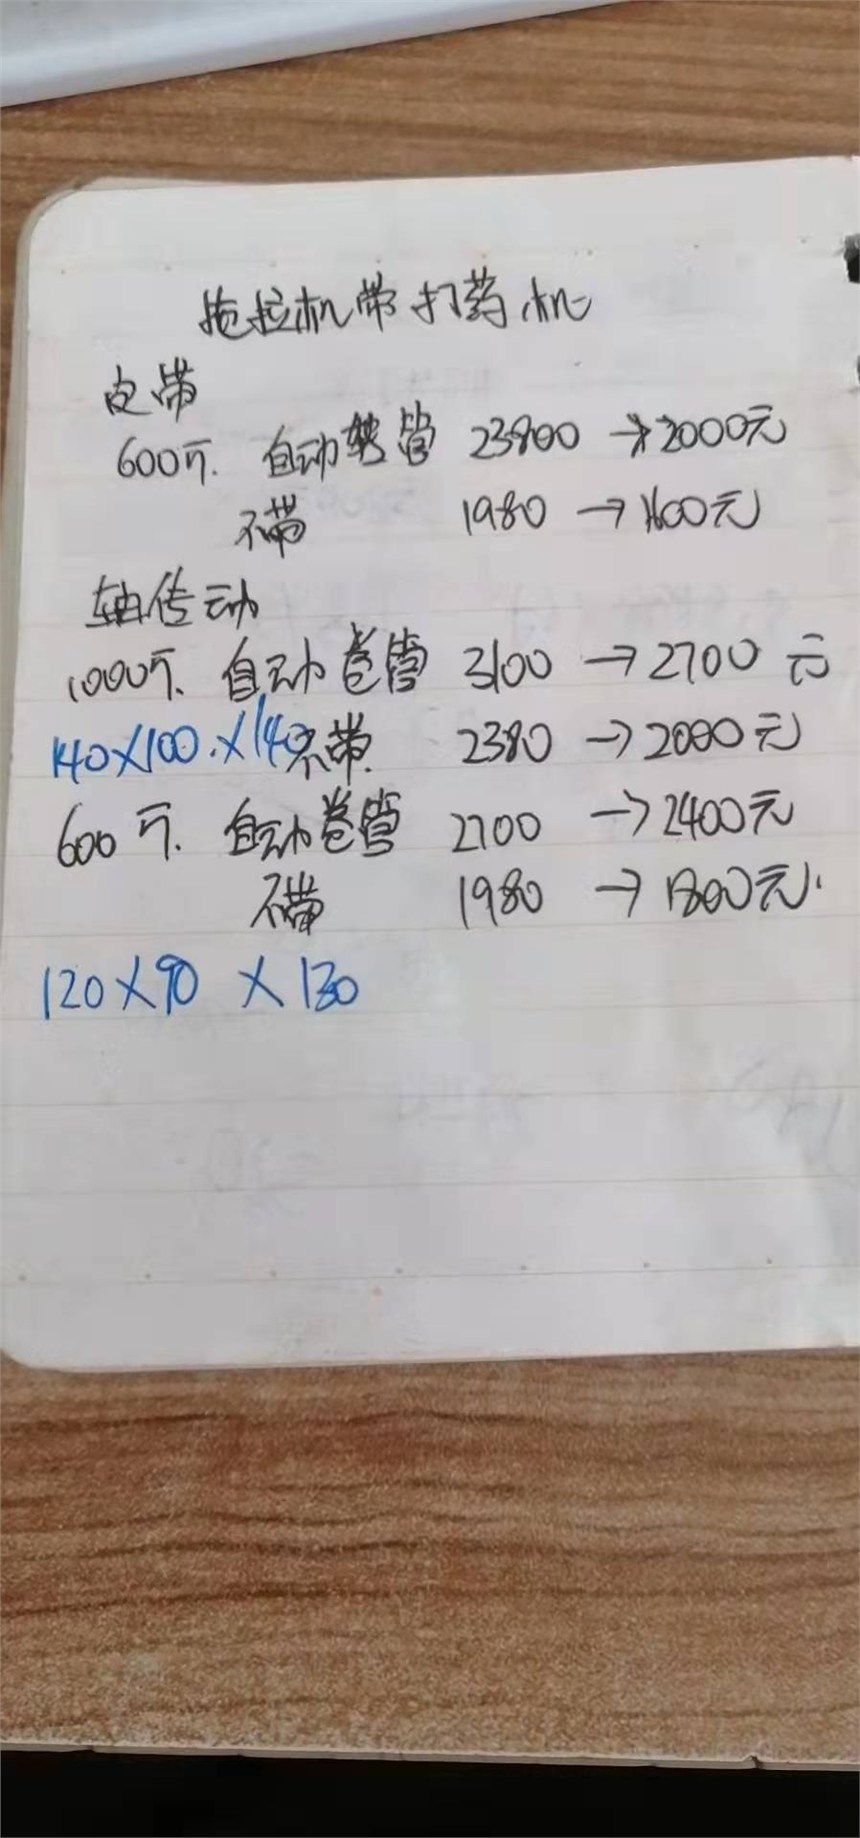 拖拉机带打药机
皮带
600斤. 自动卷管 23800 → 2000元
不带 1980 → 1600元
轴传动
1000斤. 自动卷管 3100 → 2700元
140×100.×140 不带. 2380 → 2000元
600斤. 自动卷管 2700 → 2400元
不带 1980 → 1800元.
120×90×130